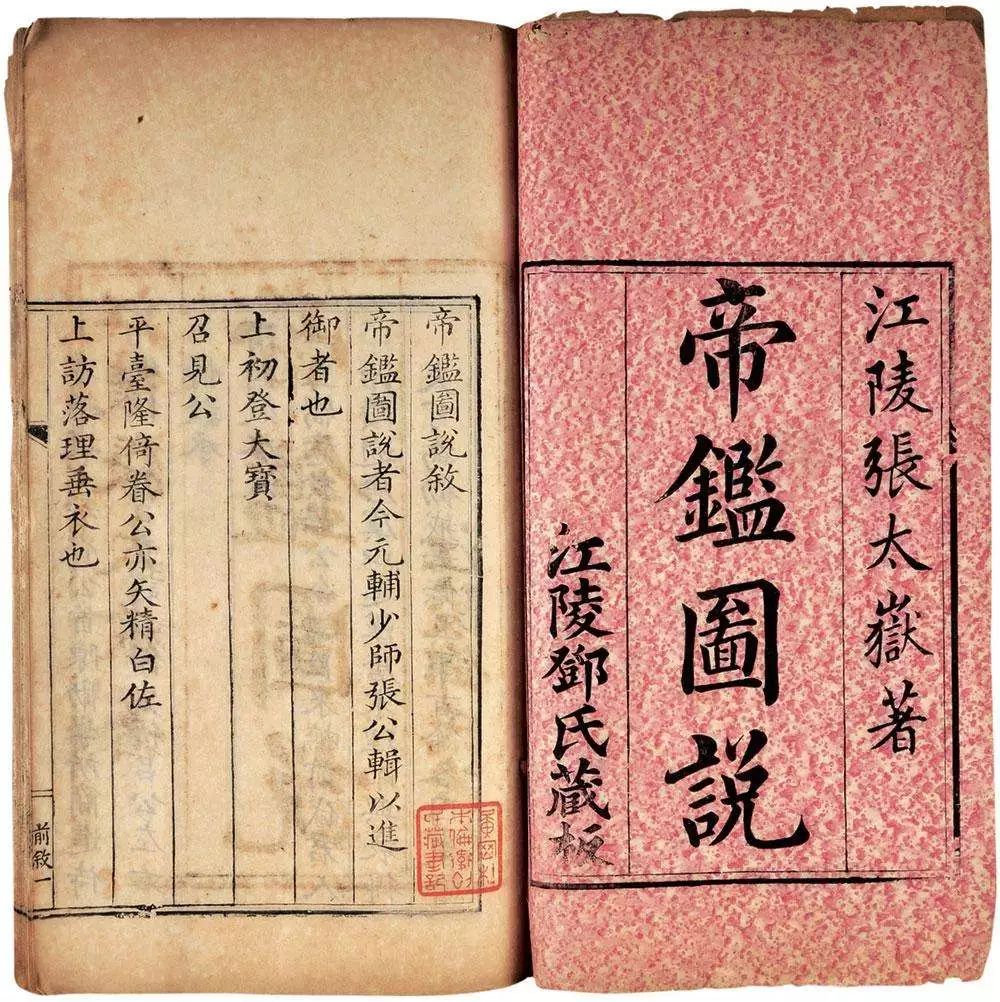 江陵張太嶽著
帝鑑圖説
江陵鄧氏藏板
帝鑑圖說敘
帝鑑圖說者今元輔少師張公輯以進
御者也
上初登大寶
召見公
平臺隆倚眷公亦矢精白佐
上訪落理垂衣也
前敘一